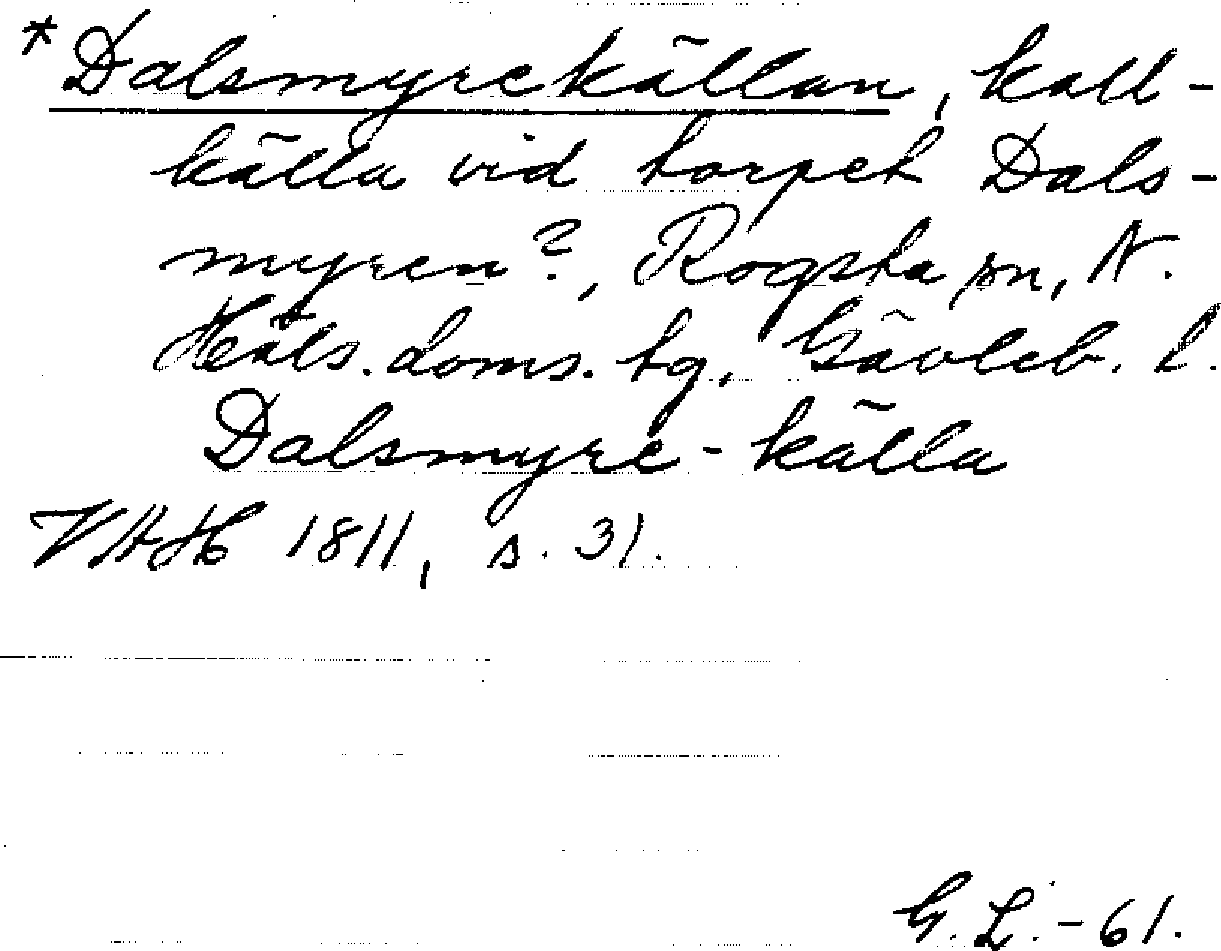 *Dalsmyrekällan, kall-
källa vid torpet Dals-
myren?, Rogsta sn, N.
Häls. doms. tg, Gävleb. l.
Dalsmyre-källa
VAH 1811, s. 31.
G. L. -61.